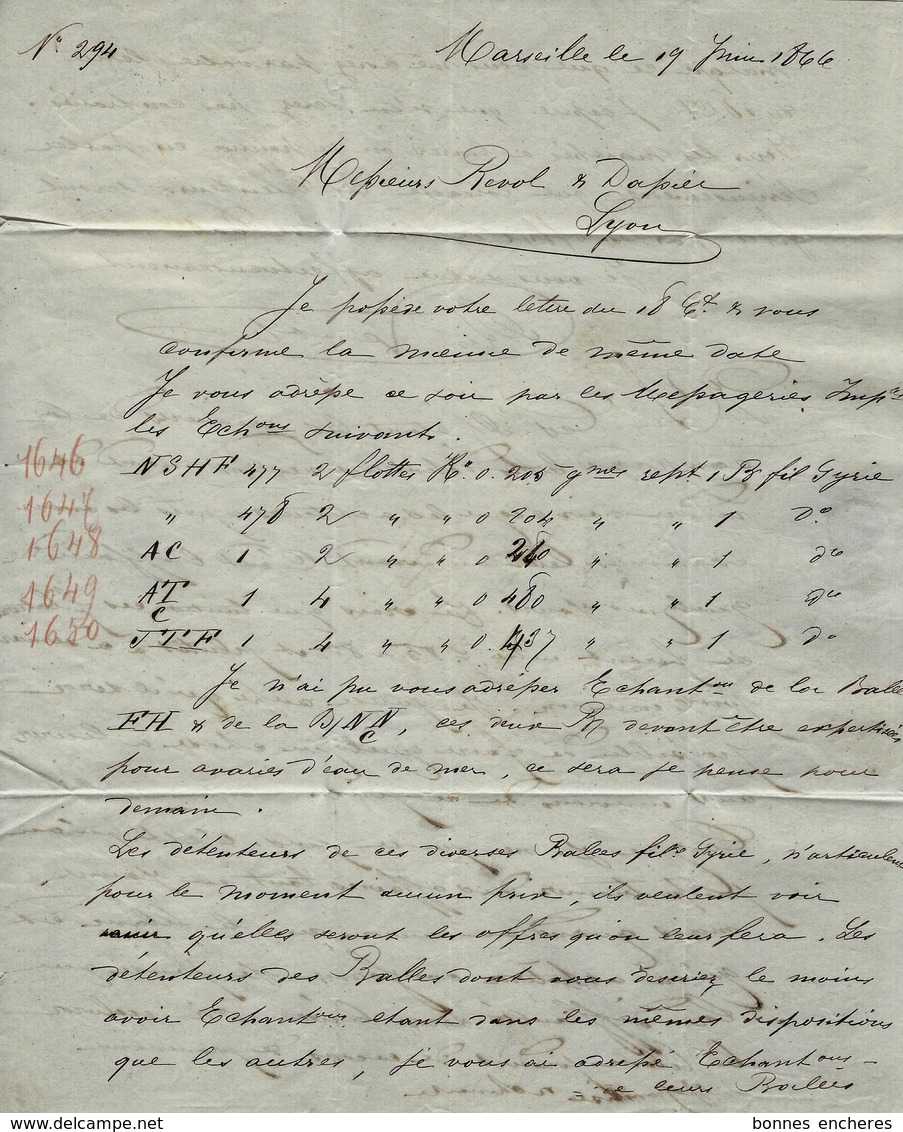 Nº 294
Marseille le 19 Juin 1866
Messieurs Revol & Dassier
Lyon
Je possède votre lettre du 18 Ct. & vous
confirme la mienne de même date
Je vous adresse ce soir par les Messageries Imples
les Echons suivants.
1646 NSHF 477 2 flottes Ko. 0.205 gmes rept. 1 B/ fil Syrie
1647 " 478 2 " " 0 204 " " 1 do
1648 AC 1 2 " " 0 240 " " 1 do
1649 AT C 1 4 " " 0 480 " " 1 do
1650 JTF 1 4 " " 0. 437 " " 1 do
Je n'ai pu vous adresser Echantons de la Balle
FH & de la B/ NN C, ces deux B/ devant être expertisées
pour avaries d'eau de mer, ce sera je pense pour
demain.
Les détenteurs de ces diverses Balles files Syrie, n'articulent
pour le moment aucun prix, ils veulent voir
qu'elles seront les offres qu'on leur fera. Les
détenteurs des Balles dont vous desiriez le moins
avoir Echantons etant dans les mêmes dispositions
que les autres, je vous ai adressé Echantons
de leurs Balles
bonnes encheres